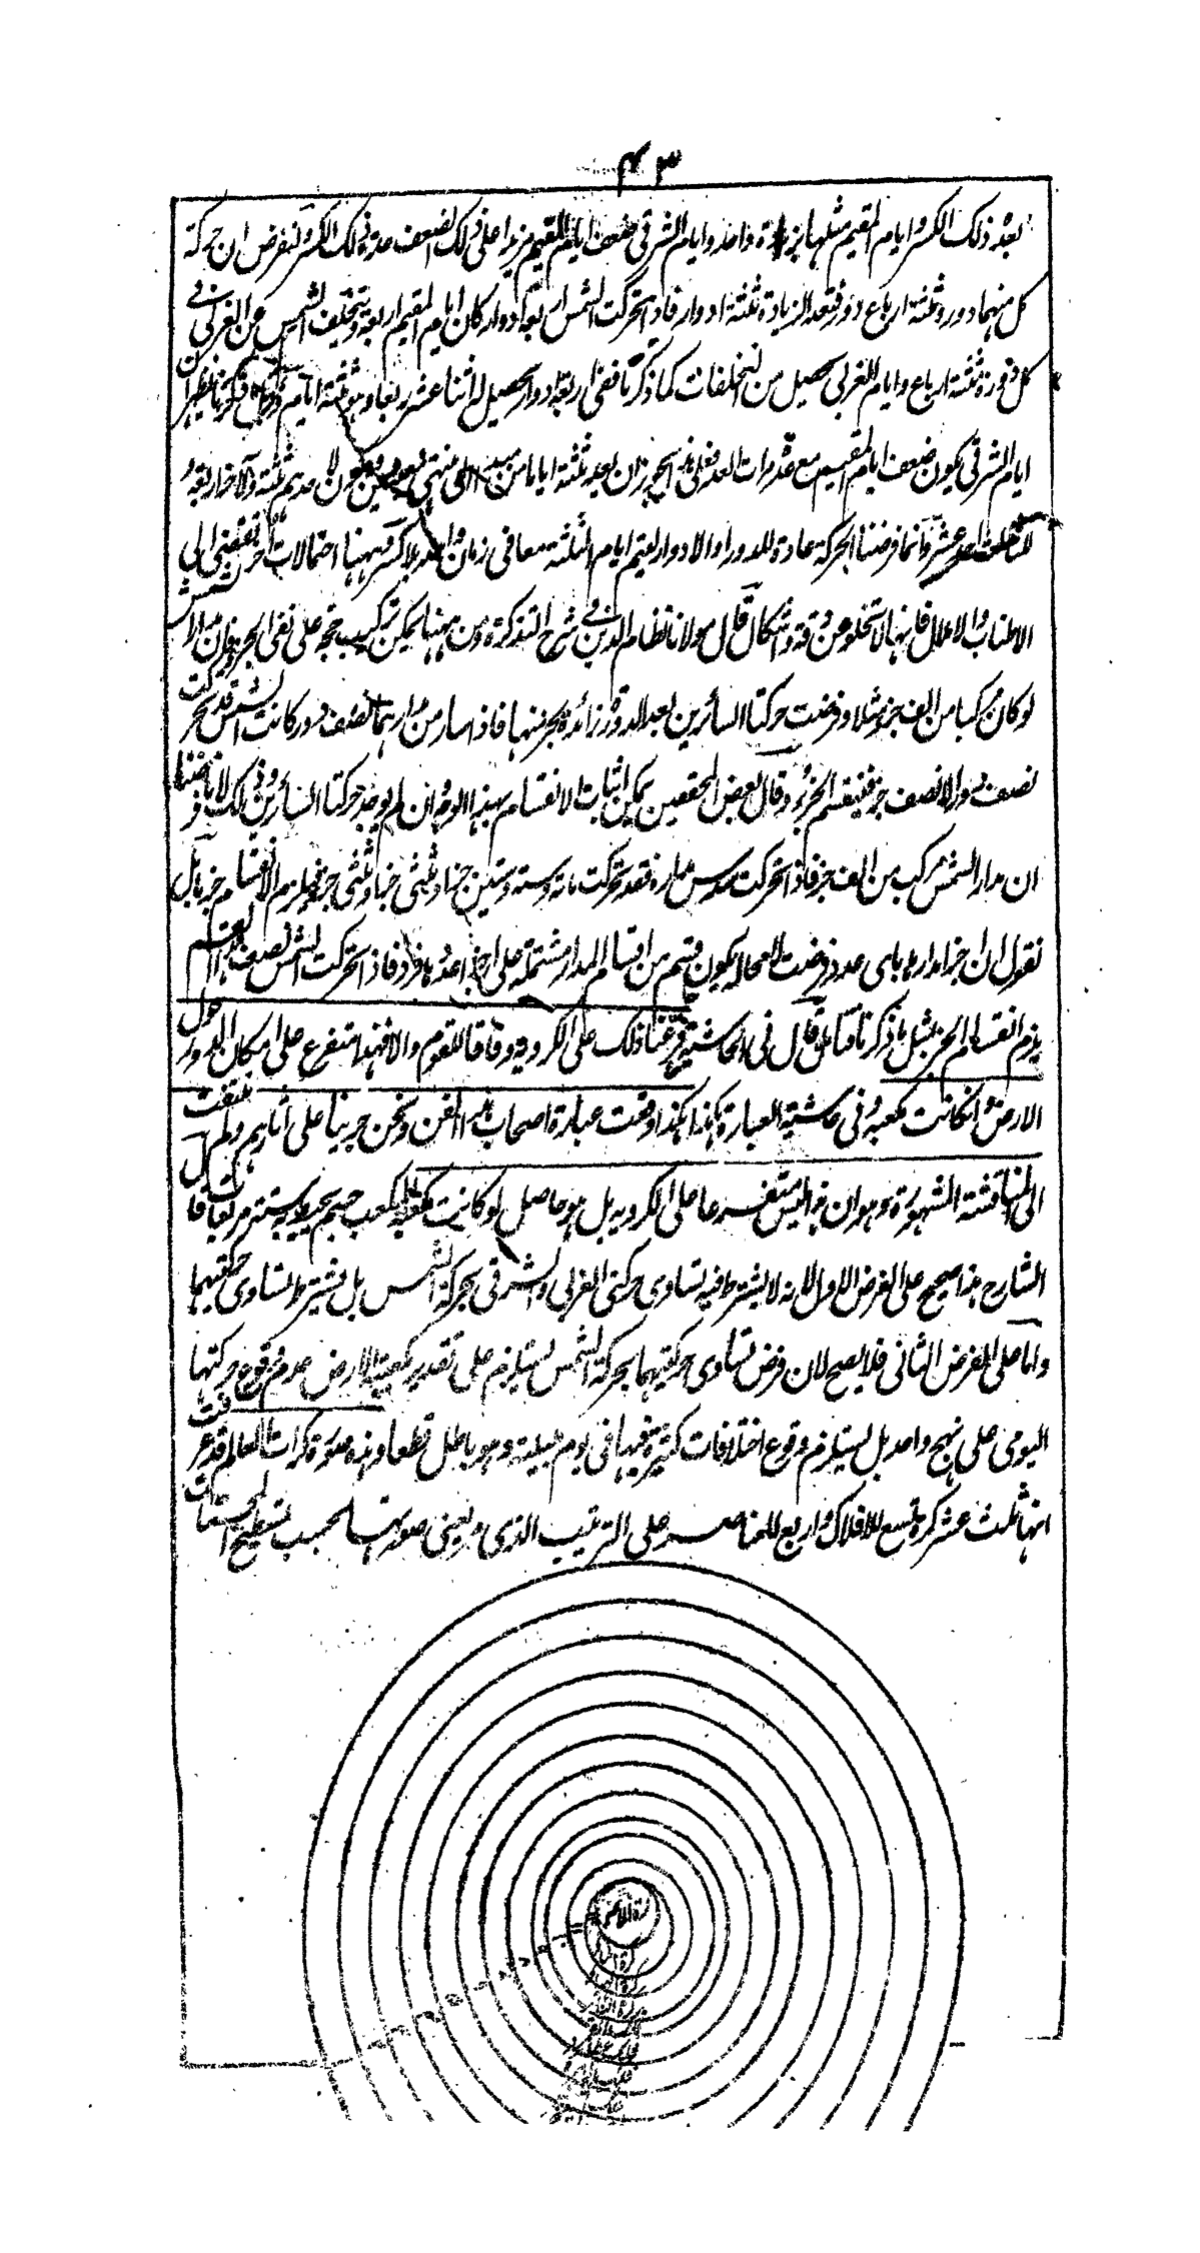 ٤٣
بعدد ذلك الكسر وايام المقيم مثلها بزيادة واحد وايام الشرقي ضعف ايام المقيم مزيدا على ذلك الضعف عدد ذلك الكسر ولنفرض ان حركة
كل منهما دور وثلثة ارباع دور فتعد الزيادة ثلثة ادوار فاذا تحركت الشمس اربعة ادوار كان ايام المقيم اربعة وتتخلف الشمس عن الغربي في
كل دورة ثلثة ارباع وايام الغربي تحصل من التخلفات كما ذكرنا ففي اربعة ادوار يحصل له اثنا عشر ربعا وهو ثلثة ايام
ايام الشرقي يكون ضعف ايام المقيم مع عدد مرات العد فعلى هذا يجوز ان يعد ثلثة اياما من الى منتهى
احد عشر وانما فرضنا الحركة عادة للدور او الادوار ليتم ايام الثلثة معا في زمان واحد بلا كسر وههنا احتمالات اخر تفضي الى
الاطناب والاملال فانها لا تخلو عن دقة واشكال قال مولانا نظام الدين في شرح التذكرة ومن ههنا يمكن تركيب حجة على نفي الجزء فان مدار الشمس
لو كان مركبا من الف جزء مثلا وفرضت حركتا السائرين بعد الدورة زائدة بجزء منها فاذا سار من مدارهما نصف دور كانت الشمس قد تحركت
نصف دور الا نصف جزء فينقسم الجزء وقال بعض المحققين يمكن اثبات الانقسام بهذا الوجه وان لم يوجد حركتا السائرين في ذلك لانا اذا فرضنا
ان مدار الشمس مركب من الف جزء فاذا تحركت سدس مداره فقد تحركت مائة وستة وستين جزءا وثلثي جزء فيلزم الانقسام جزء بل
نقول ان اجزاء مدارها باي عدد فرضت لا محالة يكون قسم من اقسام المدار مشتملة على اجزاء عددها فرد فاذا تحركت الشمس نصف هذا القسم
يلزم انقسام الجزء بمثل ما ذكرنا فتأمل قال في الحاشية فرعنا ذلك على الكروية وفاقا للقوم والا فهذا متفرع على امكان الدور حول
الارض وانكانت مكعبة وفي حاشية العبارة هكذا هكذا وقعت عبارة اصحاب هذا الفن ونحن جرينا على اثارهم ولم نلتفت
الى المناقشة المشهورة وهو ان هذا ليس متفرعا على الكروية بل هو حاصل لو كانت مكعبة المكعب جسم يحيط به ستة مربعات قال
الشارح هذا صحيح على الفرض الاول لانه لا يشترط فيه تساوي حركتي الغربي والشرقي بحركة الشمس بل يشترط تساوي حركتيهما
واما على الفرض الثاني فلا يصح لان فرض تساوي حركتيهما بحركة الشمس يستلزم على تقدير مكعبية الارض عدم وقوع حركتها
اليومي على نهج واحد بل يستلزم وقوع اختلافات كثيرة فيها في يوم بليلة وهو باطل قطعا وهذه صورة كرات العالم قد عرفت
انها ثلث عشر كرة تسع للافلاك واربع للعناصر على الترتيب الذي مر يعني صورتها بحسب تسطيح المجسمات
كرة الارض